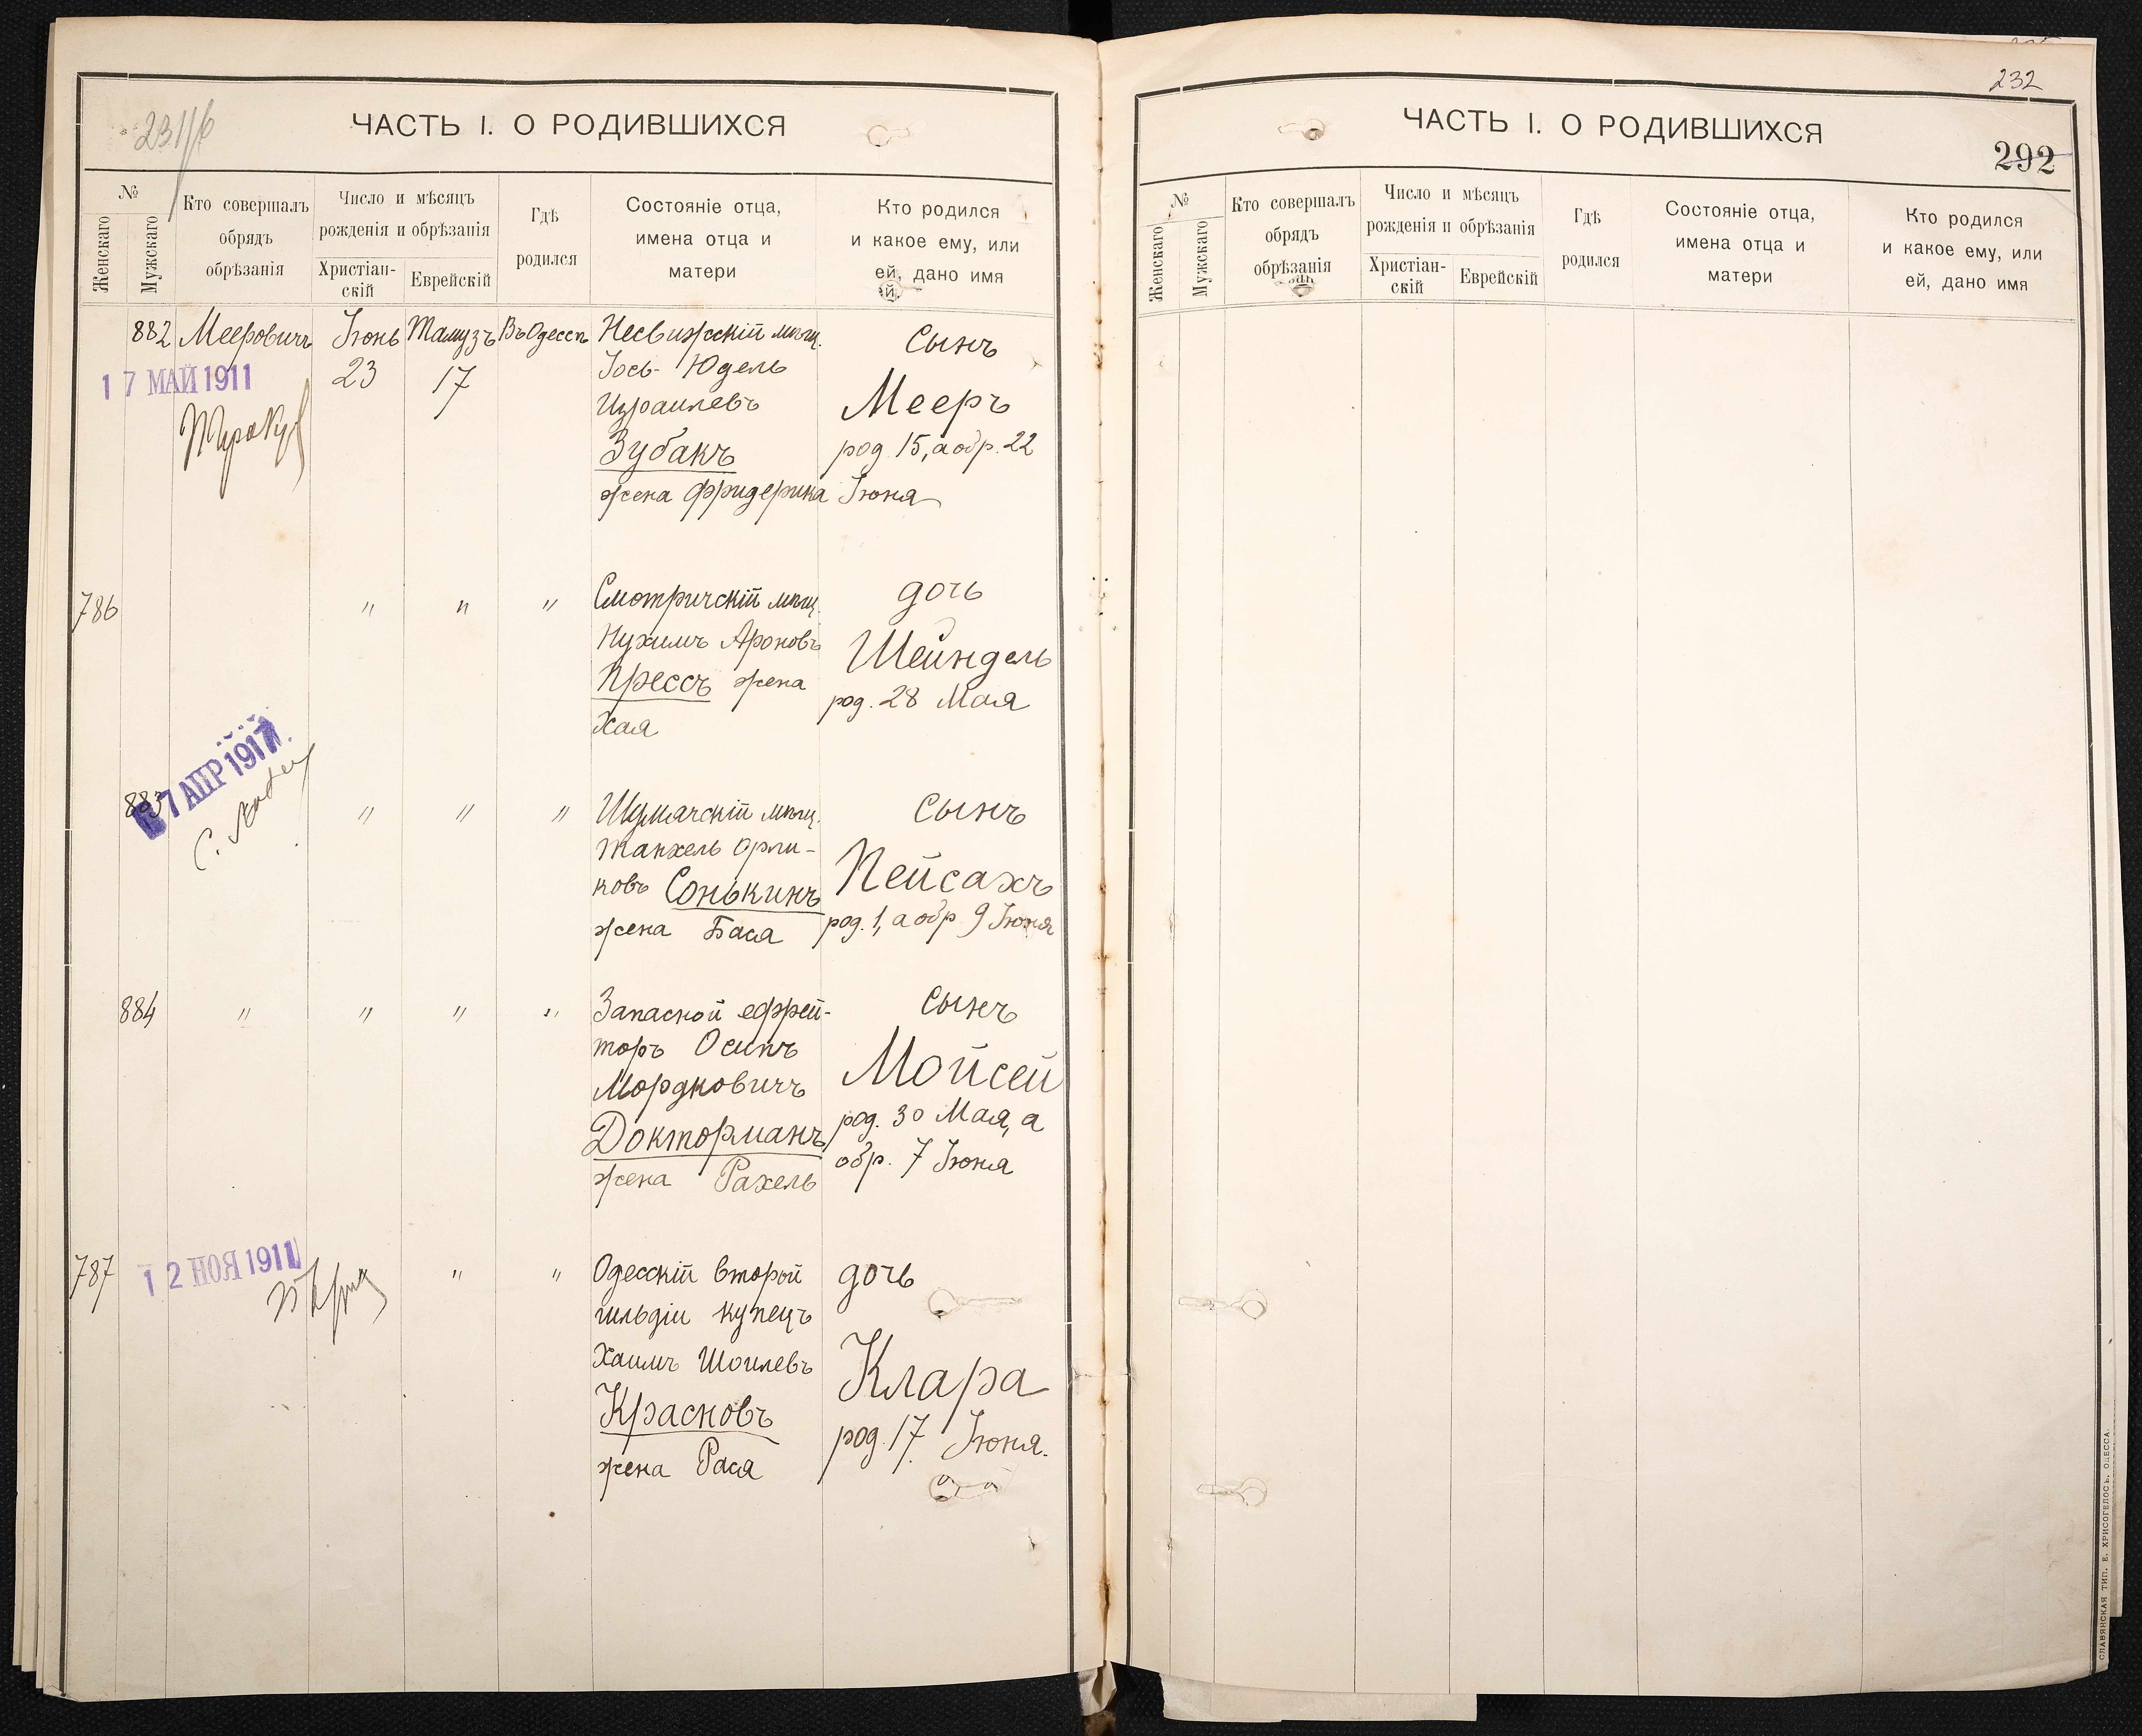 231/б
ЧАСТЬ I. О РОДИВШИХСЯ
№
Женскаго
Мужскаго
Кто совершалъ
обрядъ
обрѣзанія
Число и мѣсяцъ
рожденія и обрѣзанія
Христіан-
скій
Еврейскій
Гдѣ
родился
Состояніе отца,
имена отца и
матери
Кто родился
и какое ему, или
ей, дано имя
882
Мееровичъ
Іюнь
23
Тамузъ
17
Въ Одессѣ
Несвижскій мѣщ.
Іось-Юдель
Израилевъ
Зубакъ
жена Фридерика
Сынъ
Мееръ
род. 15, а обр. 22
Іюня
17 МАЙ 1911
786
"
"
"
Смотричскій мѣщ.
Нухимъ Ароновъ
Прессъ жена
Хая
дочь
Шейндель
род. 28 Мая
883
7 АПР 1917
"
"
"
Шумячскій мѣщ.
Жанхель Орли-
ковъ Сонькинъ
жена Бася
Сынъ
Пейсахъ
род. 1, а обр 9 Іюня
884
"
"
"
"
Запасной ефрей-
торъ Осипъ
Мордковичъ
Докторманъ
жена Рахель
Сынъ
Мойсей
род. 30 Мая, а
обр. 7 Іюня
787
12 НОЯ 1911
"
"
Одесскій второй
гильдіи купецъ
Хаимъ Шоилевъ
Красновъ
жена Рася
дочь
Клара
род. 17 Іюня.
232
ЧАСТЬ I. О РОДИВШИХСЯ
292
№
Женскаго
Мужскаго
Кто совершалъ
обрядъ
обрѣзанія
Число и мѣсяцъ
рожденія и обрѣзанія
Христіан-
скій
Еврейскій
Гдѣ
родился
Состояніе отца,
имена отца и
матери
Кто родился
и какое ему, или
ей, дано имя
СЛАВЯНСКАЯ ТИП. Е. ХРИСОГЕЛОСЪ. ОДЕССА.